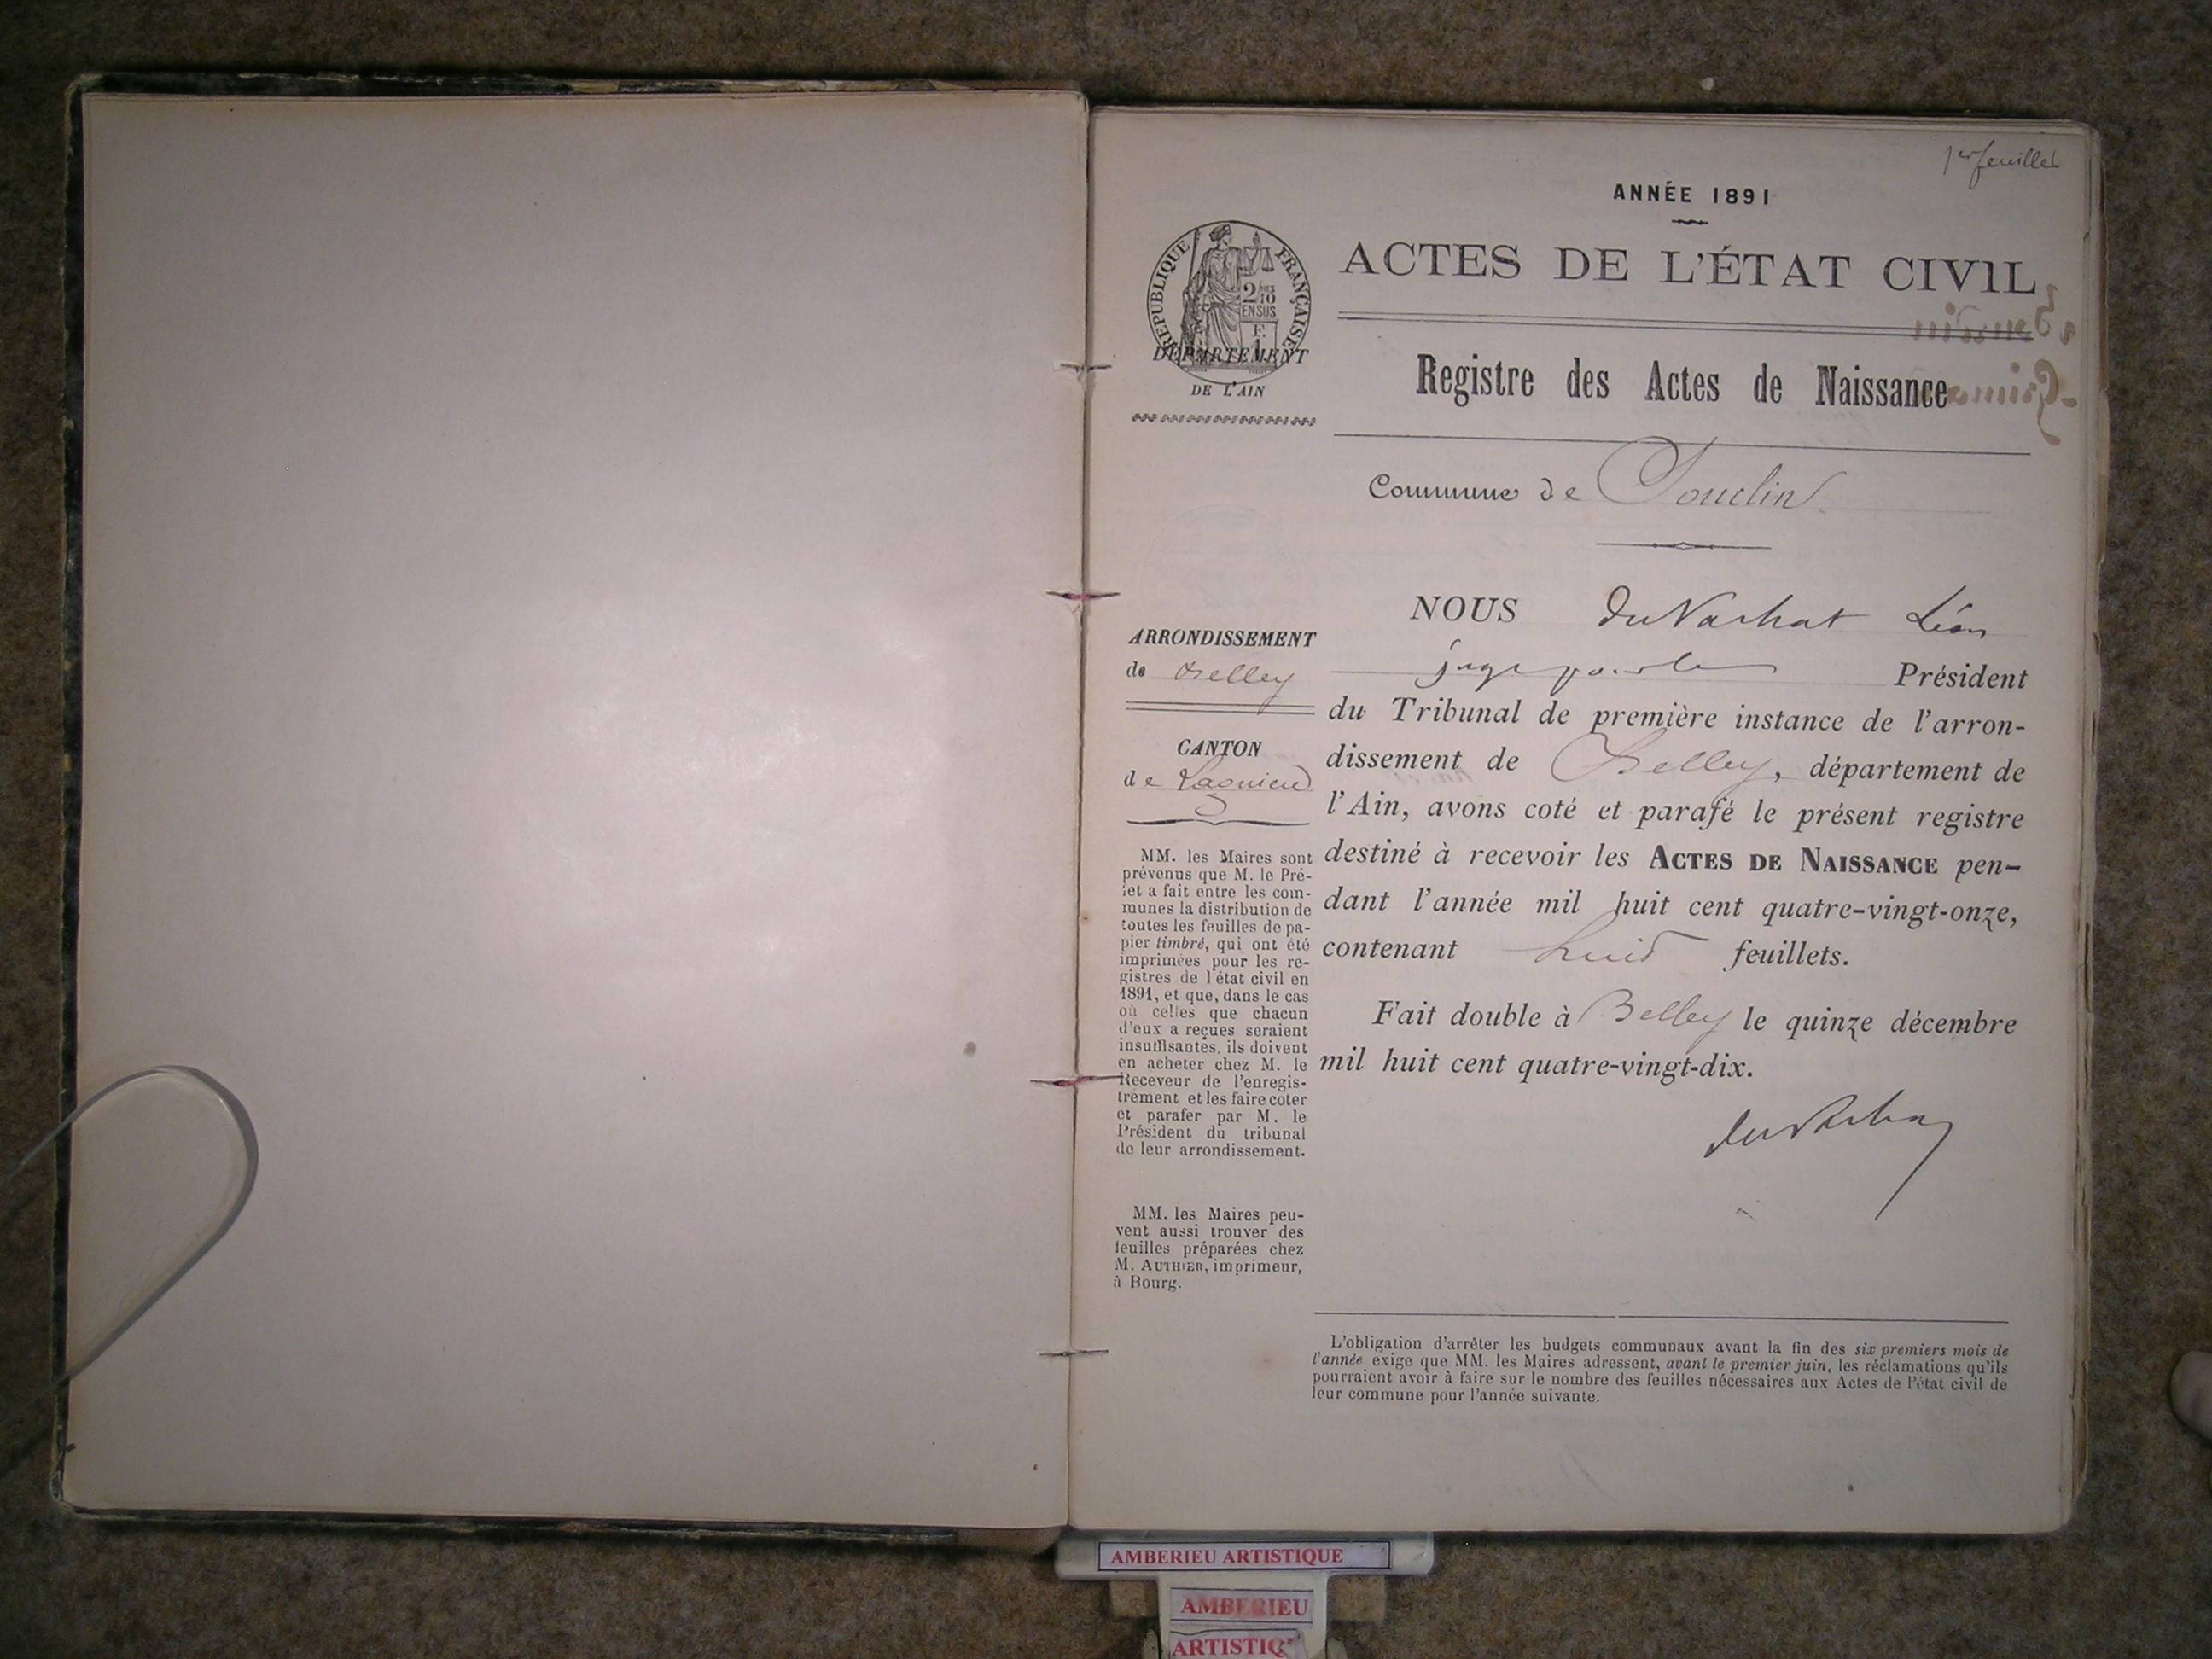 1er feuillet
ANNÉE 1891
ACTES DE L'ÉTAT CIVIL
RÉPUBLIQUE FRANÇAISE
2/10
EN SUS
DÉPARTEMENT
DE L'AIN
Registre des Actes de Naissance
Commune de Souclin
NOUS du Vachat Léon
juge pour le Président
du Tribunal de première instance de l'arron-
dissement de Belley, département de
l'Ain, avons coté et parafé le présent registre
destiné à recevoir les ACTES DE NAISSANCE pen-
dant l'année mil huit cent quatre-vingt-onze,
contenant huit feuillets.
Fait double à Belley le quinze décembre
mil huit cent quatre-vingt-dix.
ARRONDISSEMENT
de Belley
CANTON
de Lagnieu
MM. les Maires sont
prévenus que M. le Pré-
fet a fait entre les com-
munes la distribution de
toutes les feuilles de pa-
pier timbré, qui ont été
imprimées pour les re-
gistres de l'état civil en
1891, et que, dans le cas
où celles que chacun
d'eux a reçues seraient
insuffisantes, ils doivent
en acheter chez M. le
Receveur de l'enregis-
trement et les faire coter
et parafer par M. le
Président du tribunal
de leur arrondissement.
MM. les Maires peu-
vent aussi trouver des
feuilles préparées chez
M. AUTHIER, imprimeur,
à Bourg.
L'obligation d'arrêter les budgets communaux avant la fin des six premiers mois de
l'année exige que MM. les Maires adressent, avant le premier juin, les réclamations qu'ils
pourraient avoir à faire sur le nombre des feuilles nécessaires aux Actes de l'état civil de
leur commune pour l'année suivante.
AMBERIEU ARTISTIQUE
AMBERIEU
ARTISTIQ